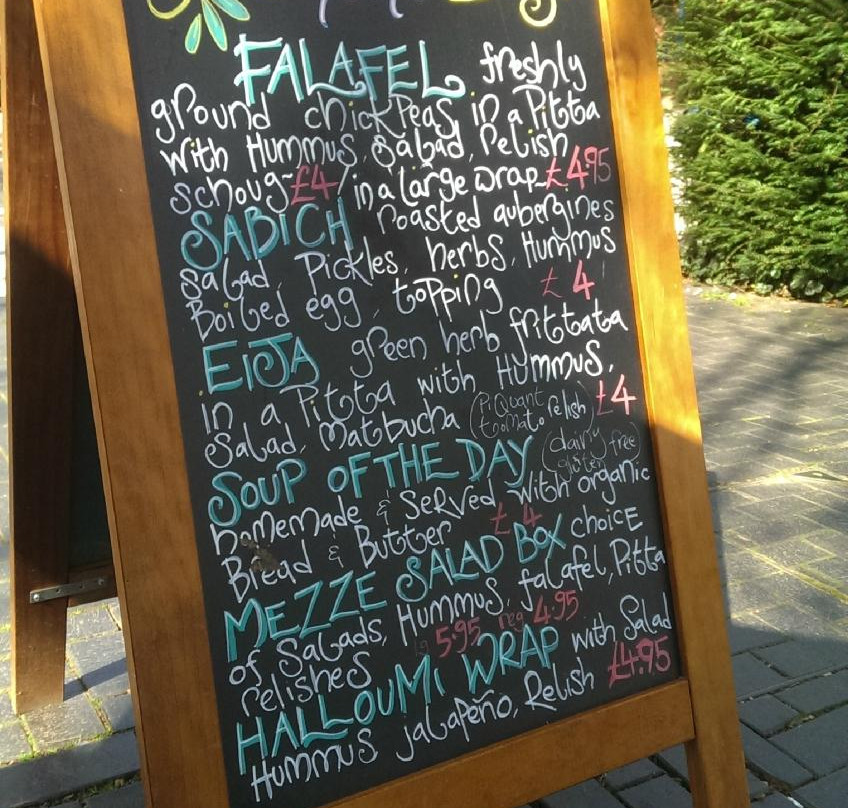 FALAFEL freshly
ground chickpeas in a Pitta
with Hummus, Salad, Relish
schoug~£4/in a large wrap~£4.95
SABICH roasted aubergines
salad, Pickles, herbs, Hummus
Boiled egg, topping £4
EIJA green herb frittata
in a Pitta with Hummus,
Salad, Matbucha (PiQuant tomato relish) £4
SOUP OF THE DAY (dairy free gluten)
homemade & served with organic
Bread & Butter £4
MEZZE SALAD BOX choice
of Salads, Hummus, falafel, Pitta
relishes lg 5.95 reg 4.95
HALLOUMI WRAP with Salad
Hummus jalapeño, Relish £4.95